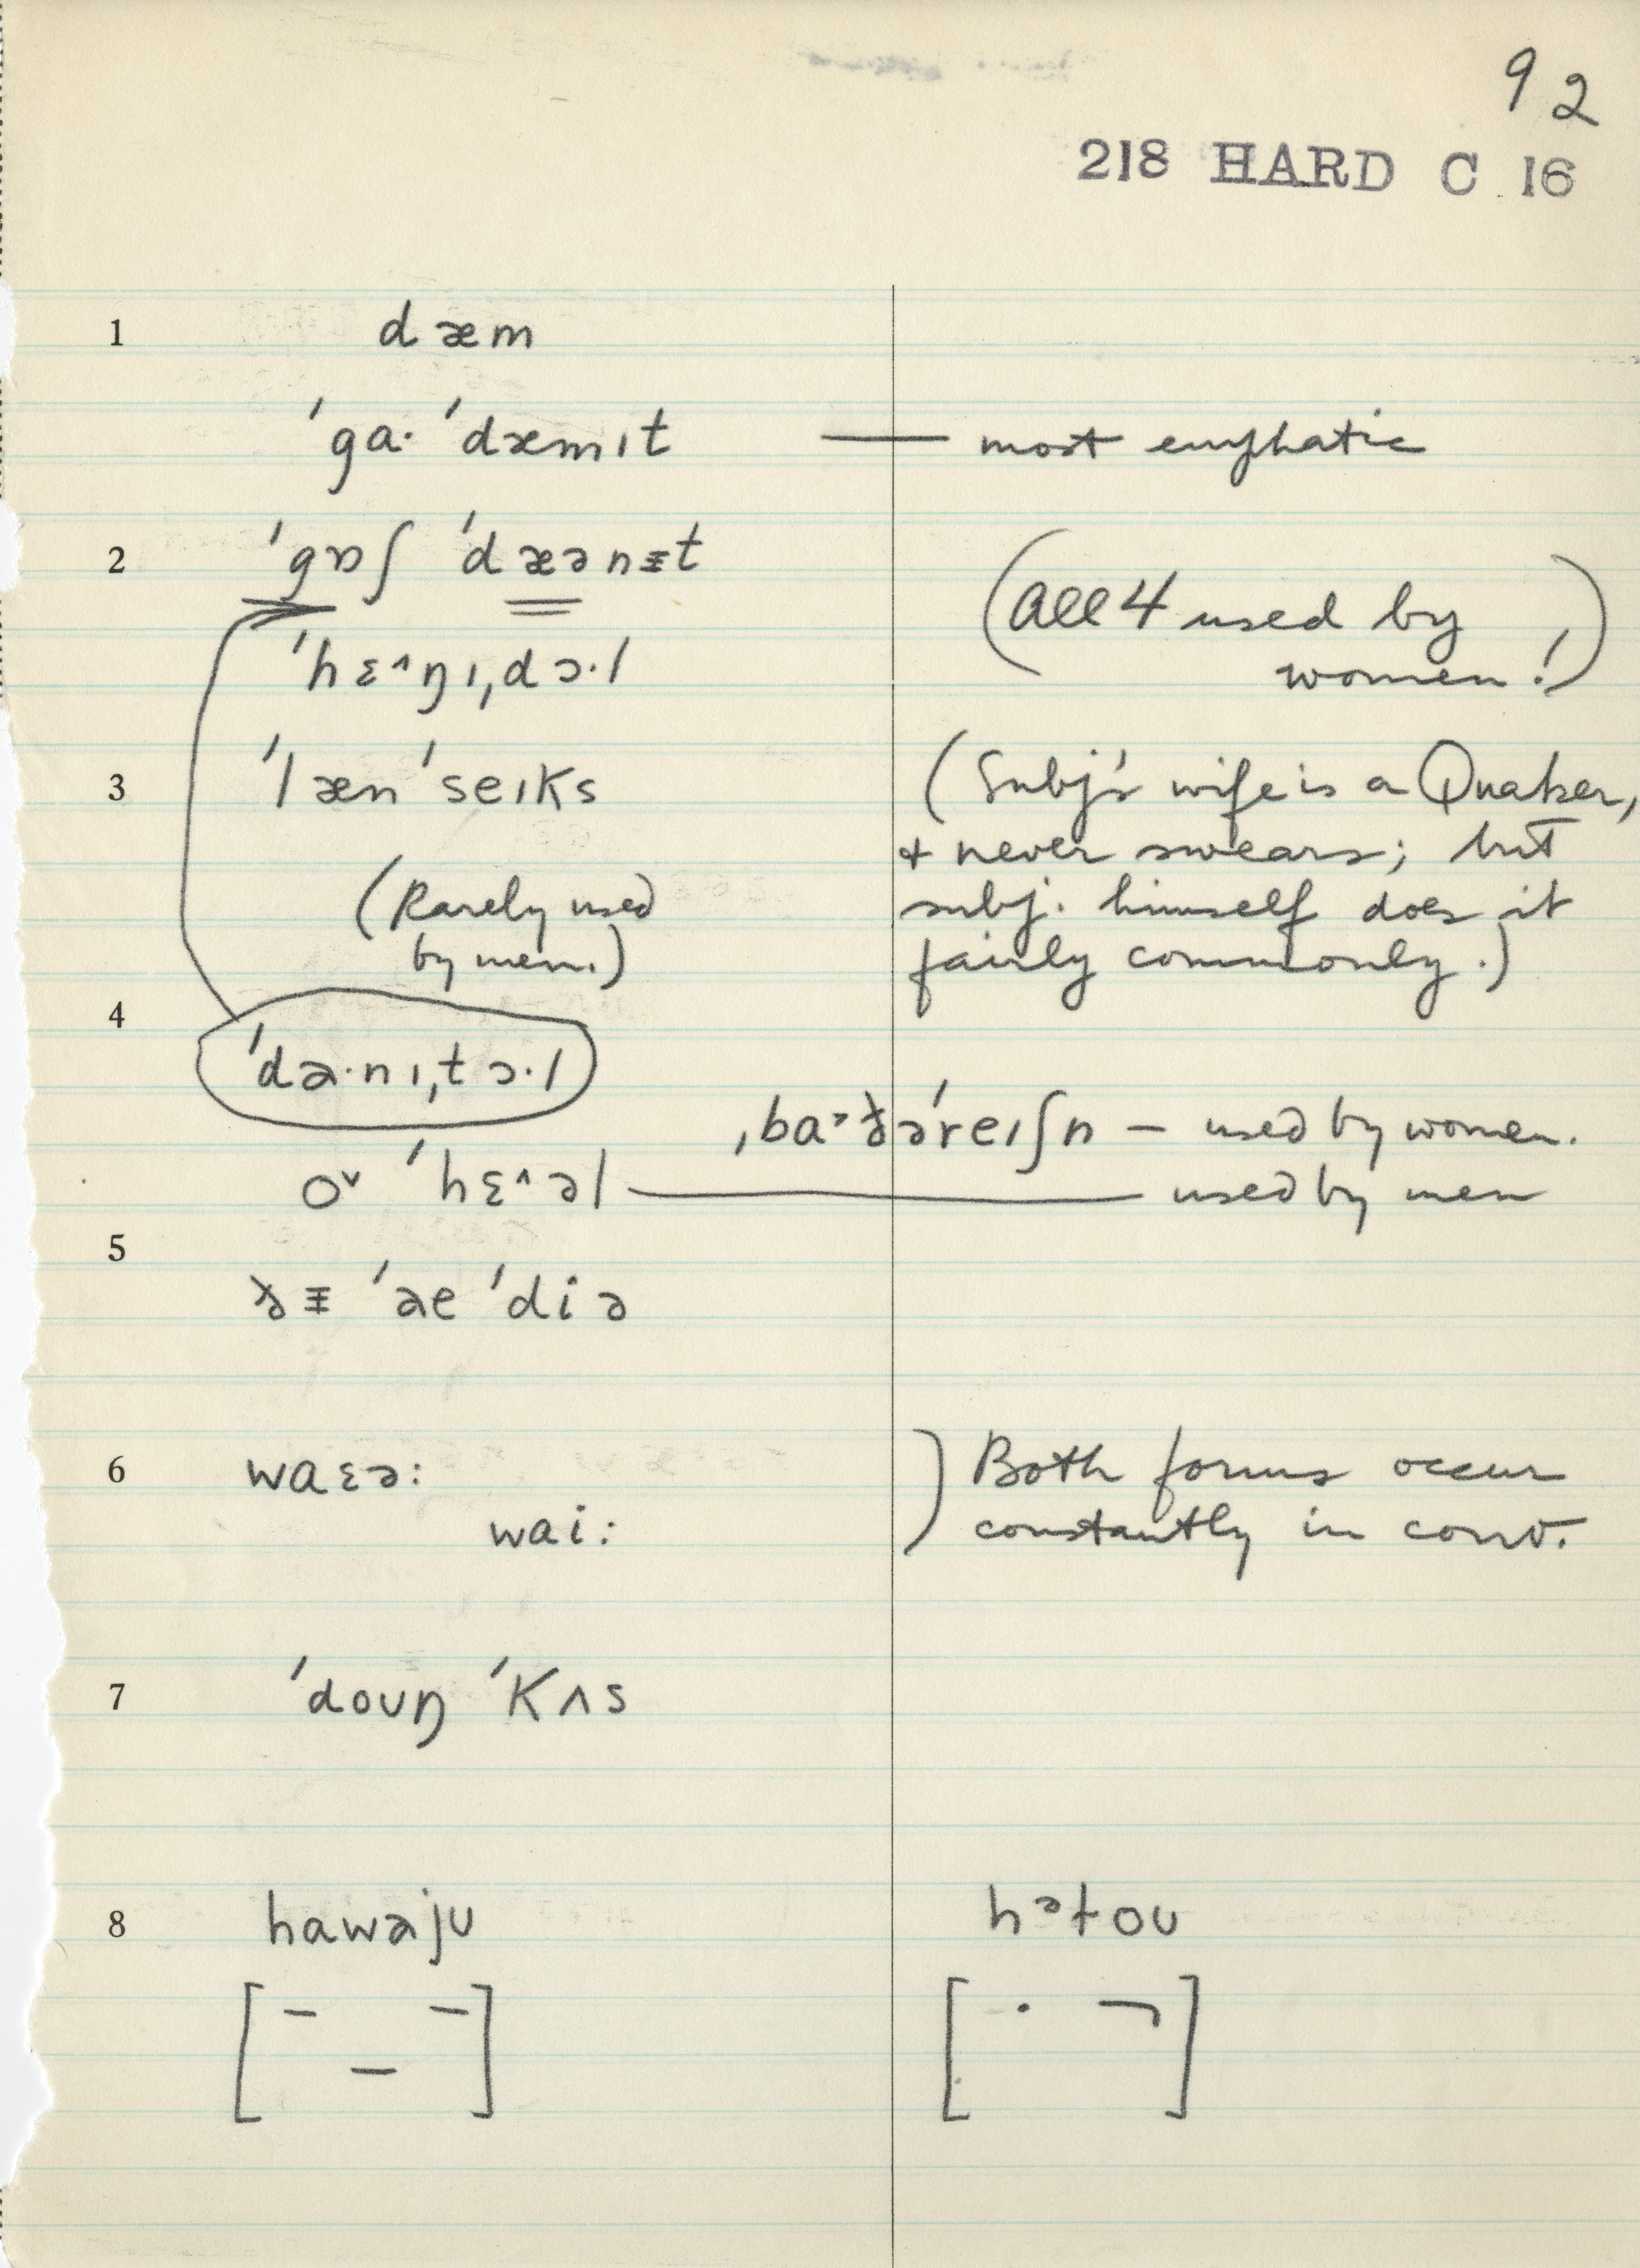 92
218 HARD C 16
1 dæm
ˈga· ˈdæmɪt — most emphatic
2 ˈgɒʃ ˈdæənᵻt
(All 4 used by
women!)
ˈhɛ^ŋɪˌdɔ·l
3 ˈlæn ˈseɪks
(Subj's wife is a Quaker,
+ never swears; but
subj. himself does it
fairly commonly.)
(Rarely used
by men.)
4
ˈdə·nɪˌtɔ·l
— used by women.
oᵛ ˈhɛ^əl — used by men
5
6 waɛə:
wai:
) Both forms occur
constantly in conv.
7 ˈdouŋ ˈKʌs
8 hawəju hᵊtou
[ – _ – ] [ · ¬ ]